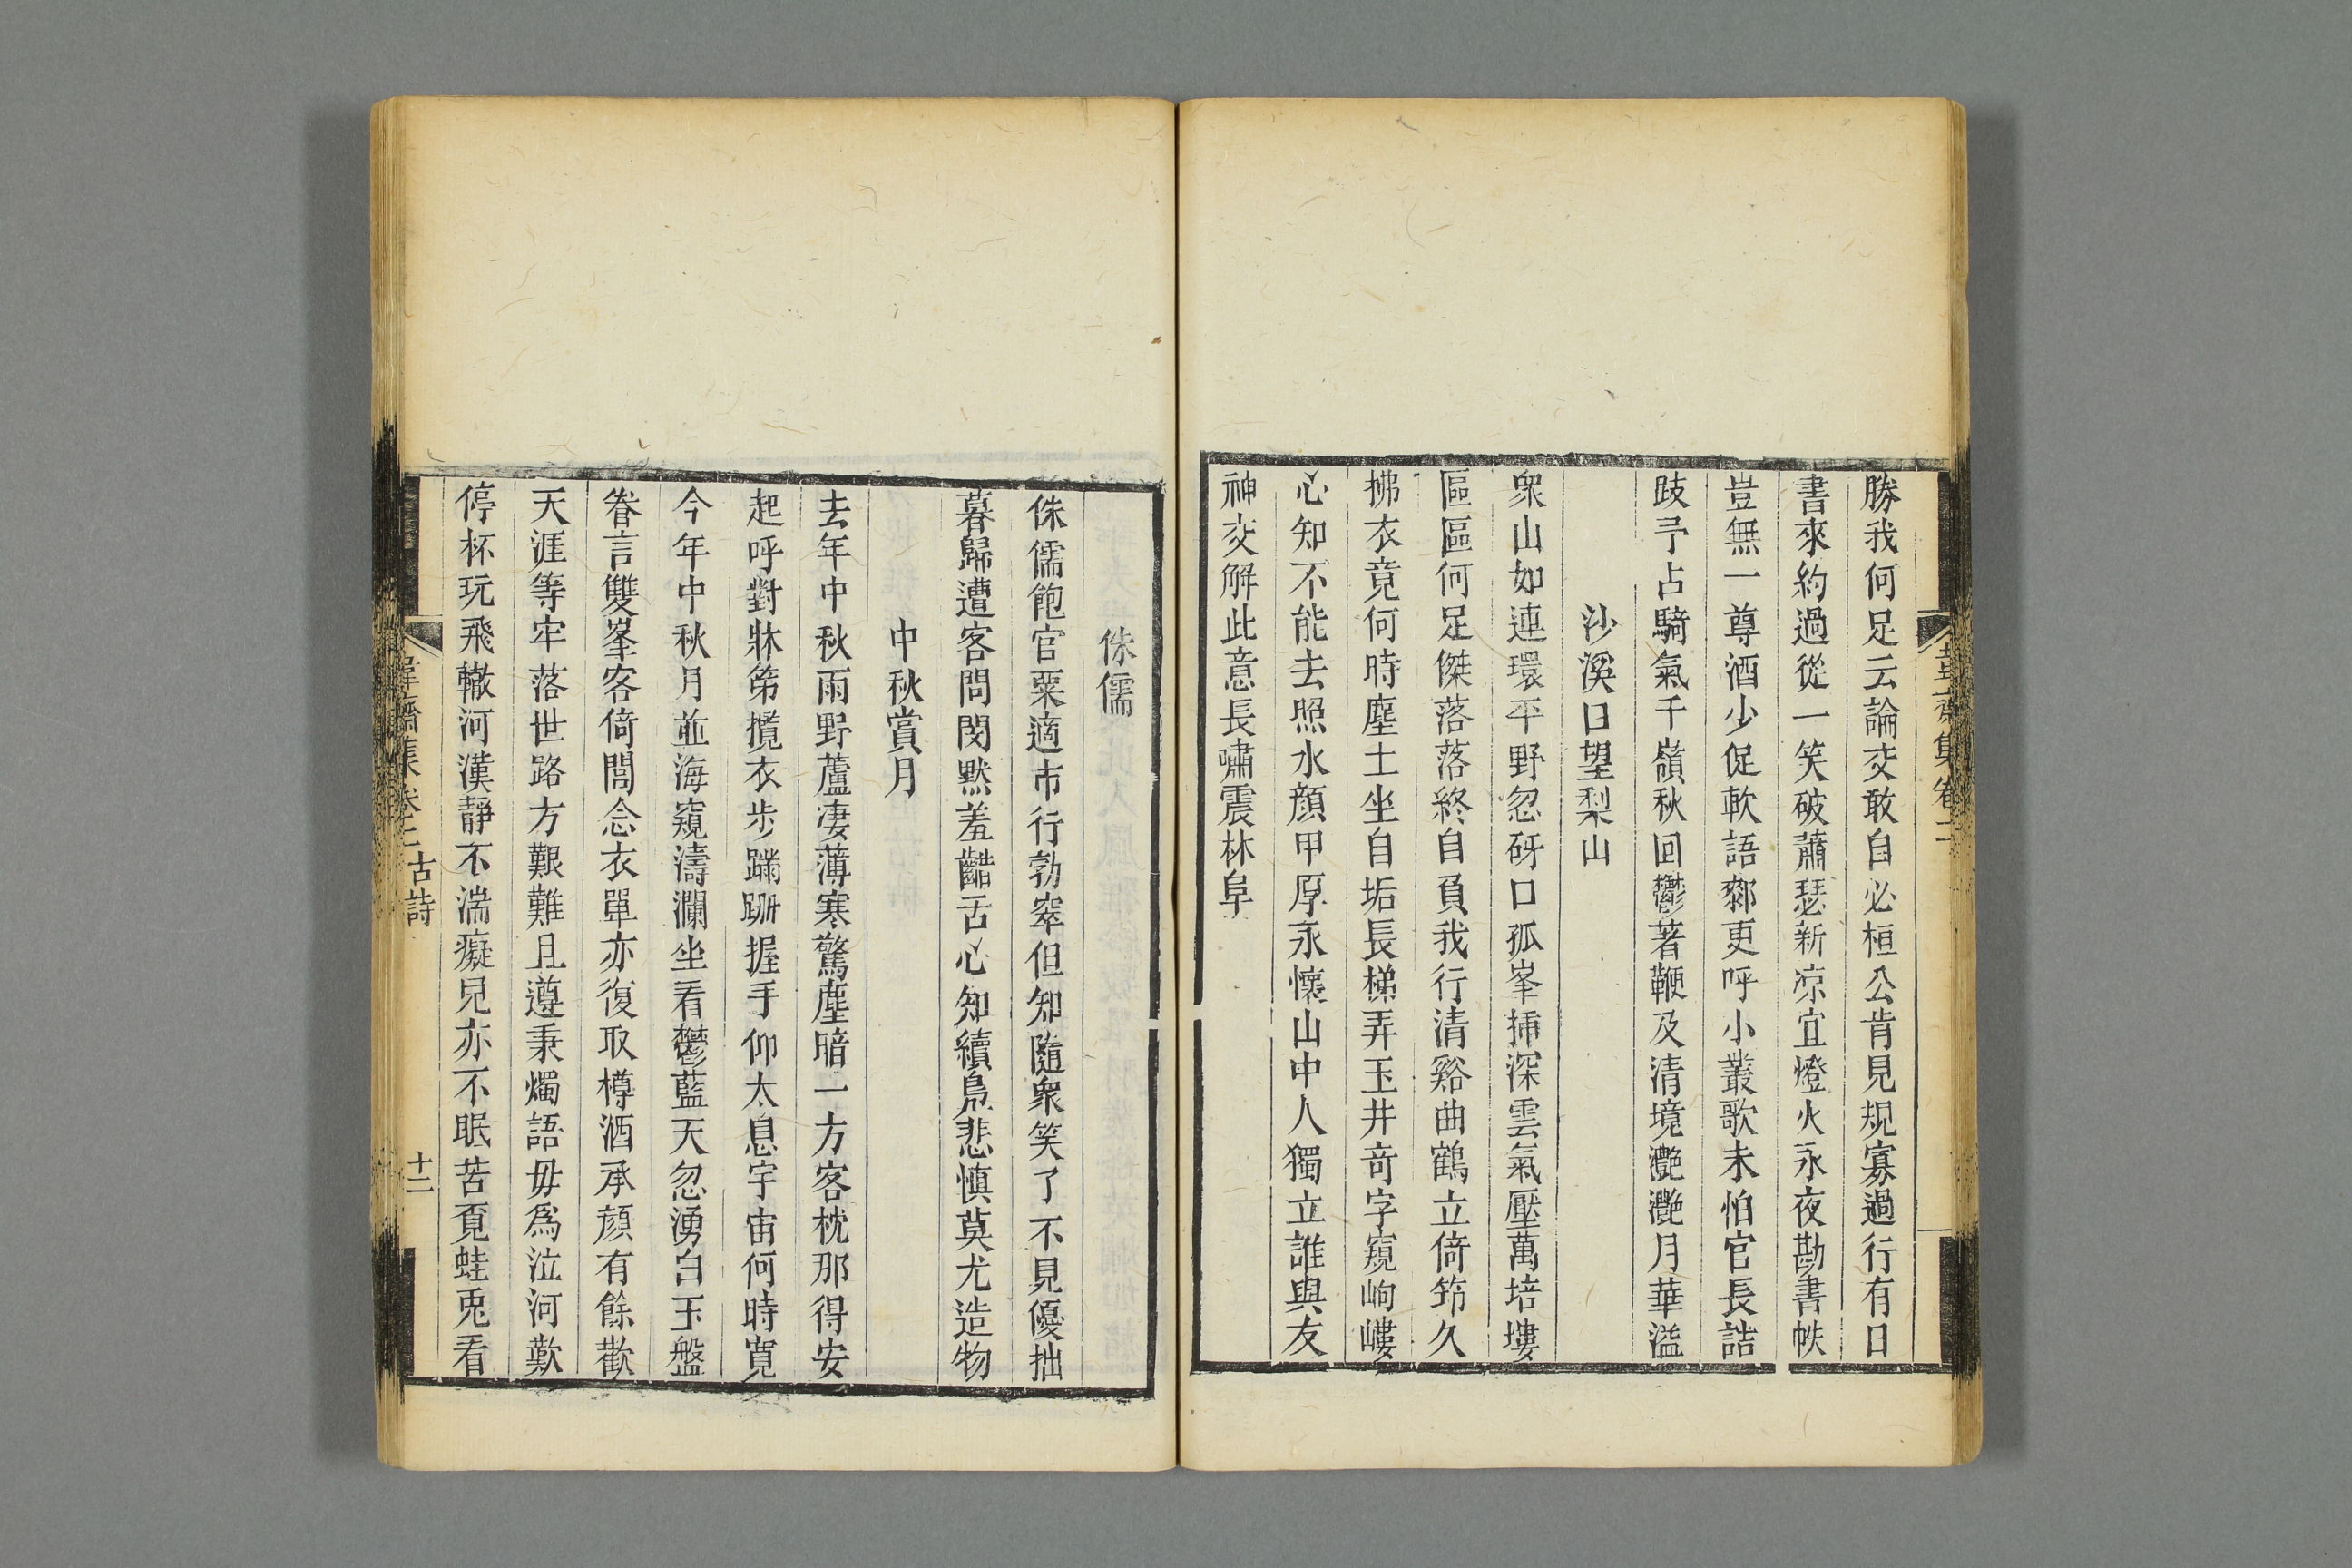 韋齋集卷二
勝我何足云論交敢自必桓公肯見規寡過行有日
書來約過從一笑破蕭瑟新凉宜燈火永夜勘書帙
豈無一尊酒少促軟語鄰更呼小叢歌未怕官長詰
跂予占騎氣千嶺秋回鬱著鞭及清境灧灧月華溢
沙溪口望梨山
衆山如連環平野忽砑口孤峯揷深雲氣壓萬培塿
區區何足傑落落終自負我行清谿曲鶴立倚筇久
拂衣竟何時塵土坐自垢長梯弄玉井奇字窺岣嶁
心知不能去照水顔甲厚永懷山中人獨立誰與友
神交解此意長嘯震林阜
侏儒
侏儒飽官粟適市行勃窣但知隨衆笑了不見優拙
暮歸遭客問閔默羞齰舌心知續鳧悲慎莫尤造物
中秋賞月
去年中秋雨野蘆凄薄寒驚塵暗一方客枕那得安
起呼對牀第攬衣步蹣跚握手仰太息宇宙何時寛
今年中秋月並海窺濤瀾坐看鬱藍天忽湧白玉盤
眷言雙峯客倚閭念衣單亦復取樽酒承顔有餘歡
天涯等牢落世路方艱難且遵秉燭語毋爲泣河歎
停杯玩飛轍河漢靜不湍癡兒亦不眠苦覔蛙兎看
韋齋集卷二 古詩 十二